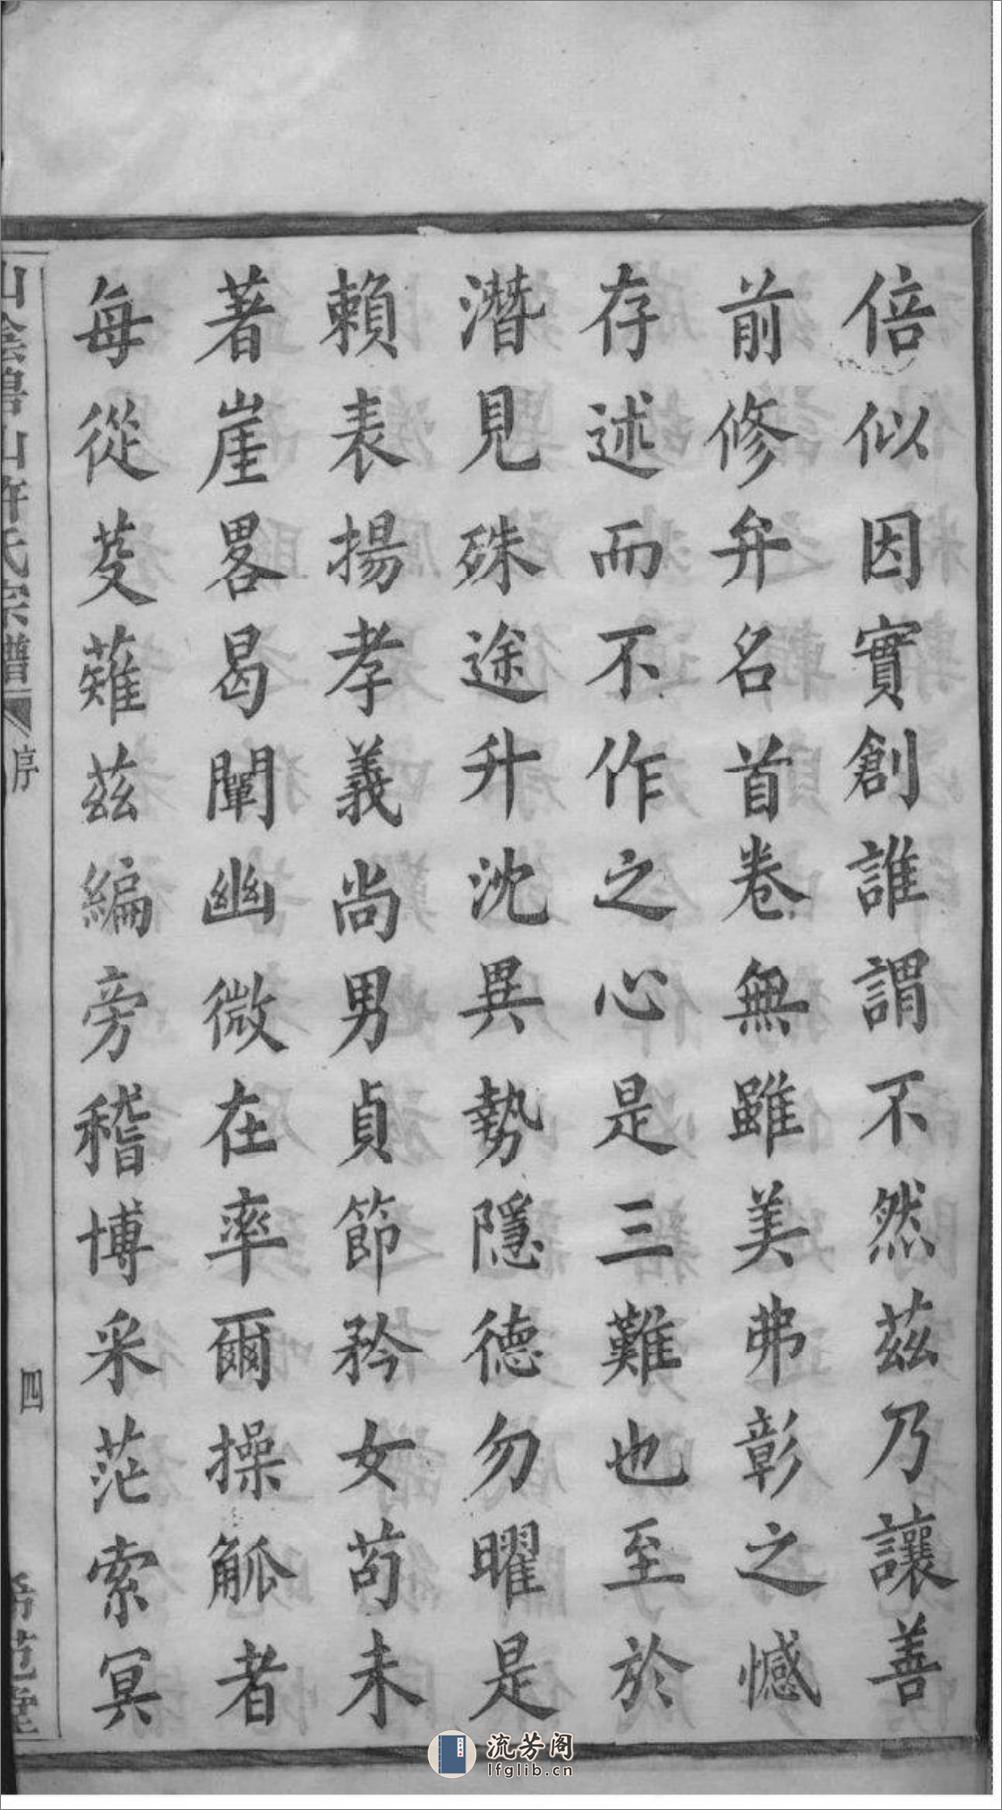 倍似因實創誰謂不然茲乃讓善
前修弁名首卷無雖美弗彰之憾
存述而不作之心是三難也至於
潛見殊途升沈異勢隱德勿曜是
賴表揚孝義尚男貞節矜女苟未
著崖畧曷闡幽微在率爾操觚者
每從芟薙茲編旁稽博采茫索冥
山陰碧山許氏宗譜
序
四
希范堂
流芳阁
lfglib.cn